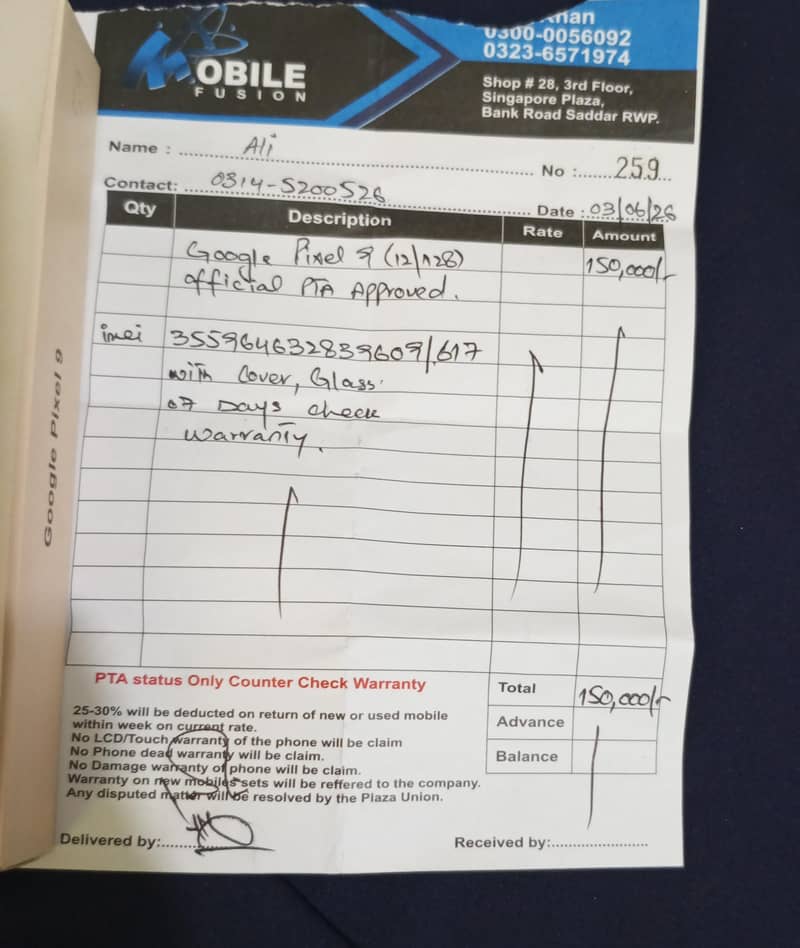 MOBILE
FUSION
Khan
0300-0056092
0323-6571974
Shop # 28, 3rd Floor,
Singapore Plaza,
Bank Road Saddar RWP.
Name : Ali
No : 259
Contact: 0314-5200526
Date : 03/06/26
Qty Description Rate Amount
Google Pixel 9 (12/128) 150,000/-
official PTA Approved.
imei 355964632839609/617
with Cover, Glass.
07 Days check
warranty.
Google Pixel 9
PTA status Only Counter Check Warranty
Total 150,000/-
Advance
Balance
25-30% will be deducted on return of new or used mobile
within week on current rate.
No LCD/Touch warranty of the phone will be claim
No Phone dead warranty will be claim.
No Damage warranty of phone will be claim.
Warranty on new mobiles sets will be reffered to the company.
Any disputed matter will be resolved by the Plaza Union.
Delivered by:
Received by: